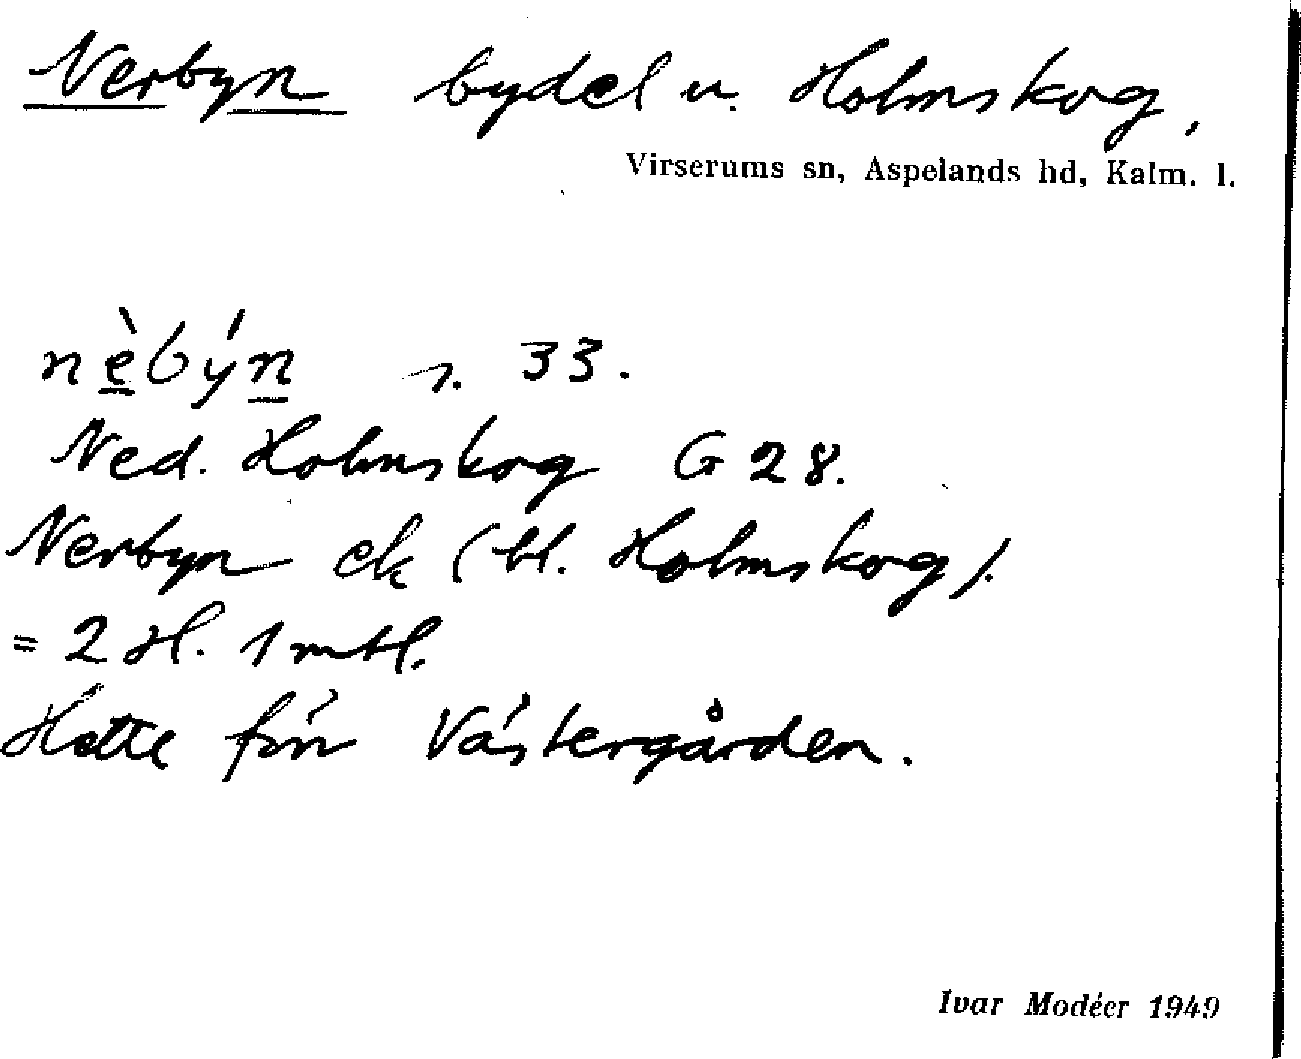 Nerbyn bydel u. Holmskog,
Virserums sn, Aspelands hd, Kalm. l.
nèbýn s. 33.
Ned. Holmskog G 28.
Nerbyn ek (bl. Holmskog).
= 2 Hl. 1 mtl.
Hette förr Västergården.
Ivar Modéer 1949